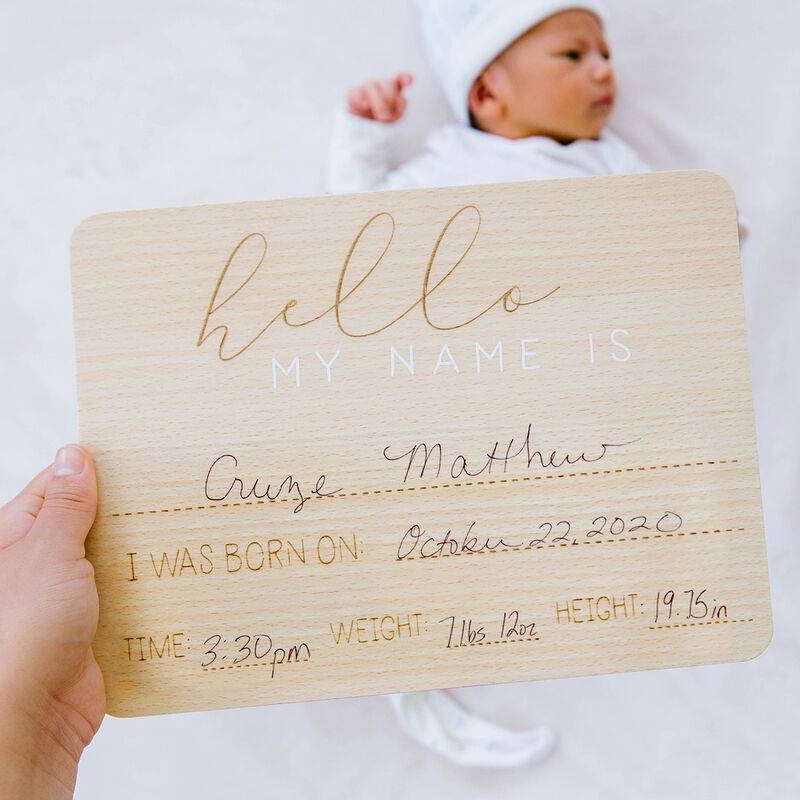 hello
MY NAME IS
Cruze Matthew
I WAS BORN ON: October 22, 2020
TIME: 3:30pm WEIGHT: 7lbs 12oz HEIGHT: 19.75in